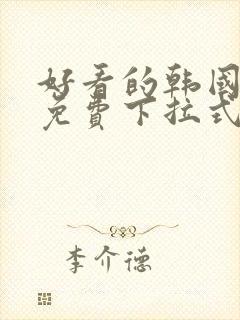 好看的韩国
免費下拉式
李介德